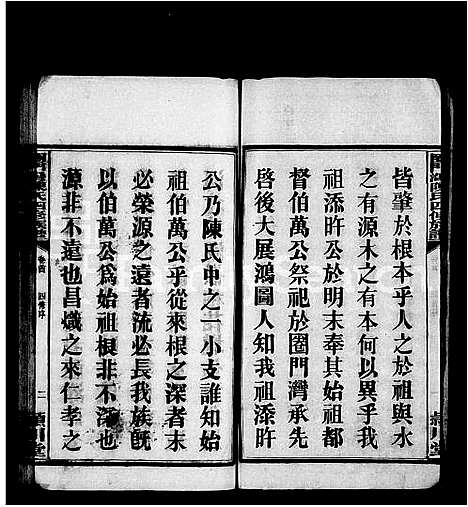 皆肇於根本乎人之於祖與水
之有源木之有本何以異乎我
祖添昨公於明末奉其始祖都
祖伯萬公祭祀於圈門灣承先
啓後大展鴻圖人知我祖添昨
公乃陳氏中之一小支誰知始
祖伯萬公乎從來根之深者末
必榮源之遠者流必長我族既
以伯萬公爲始祖根非不深也
源非不遠也昌熾之來仁孝之
卷首
二
潁川堂